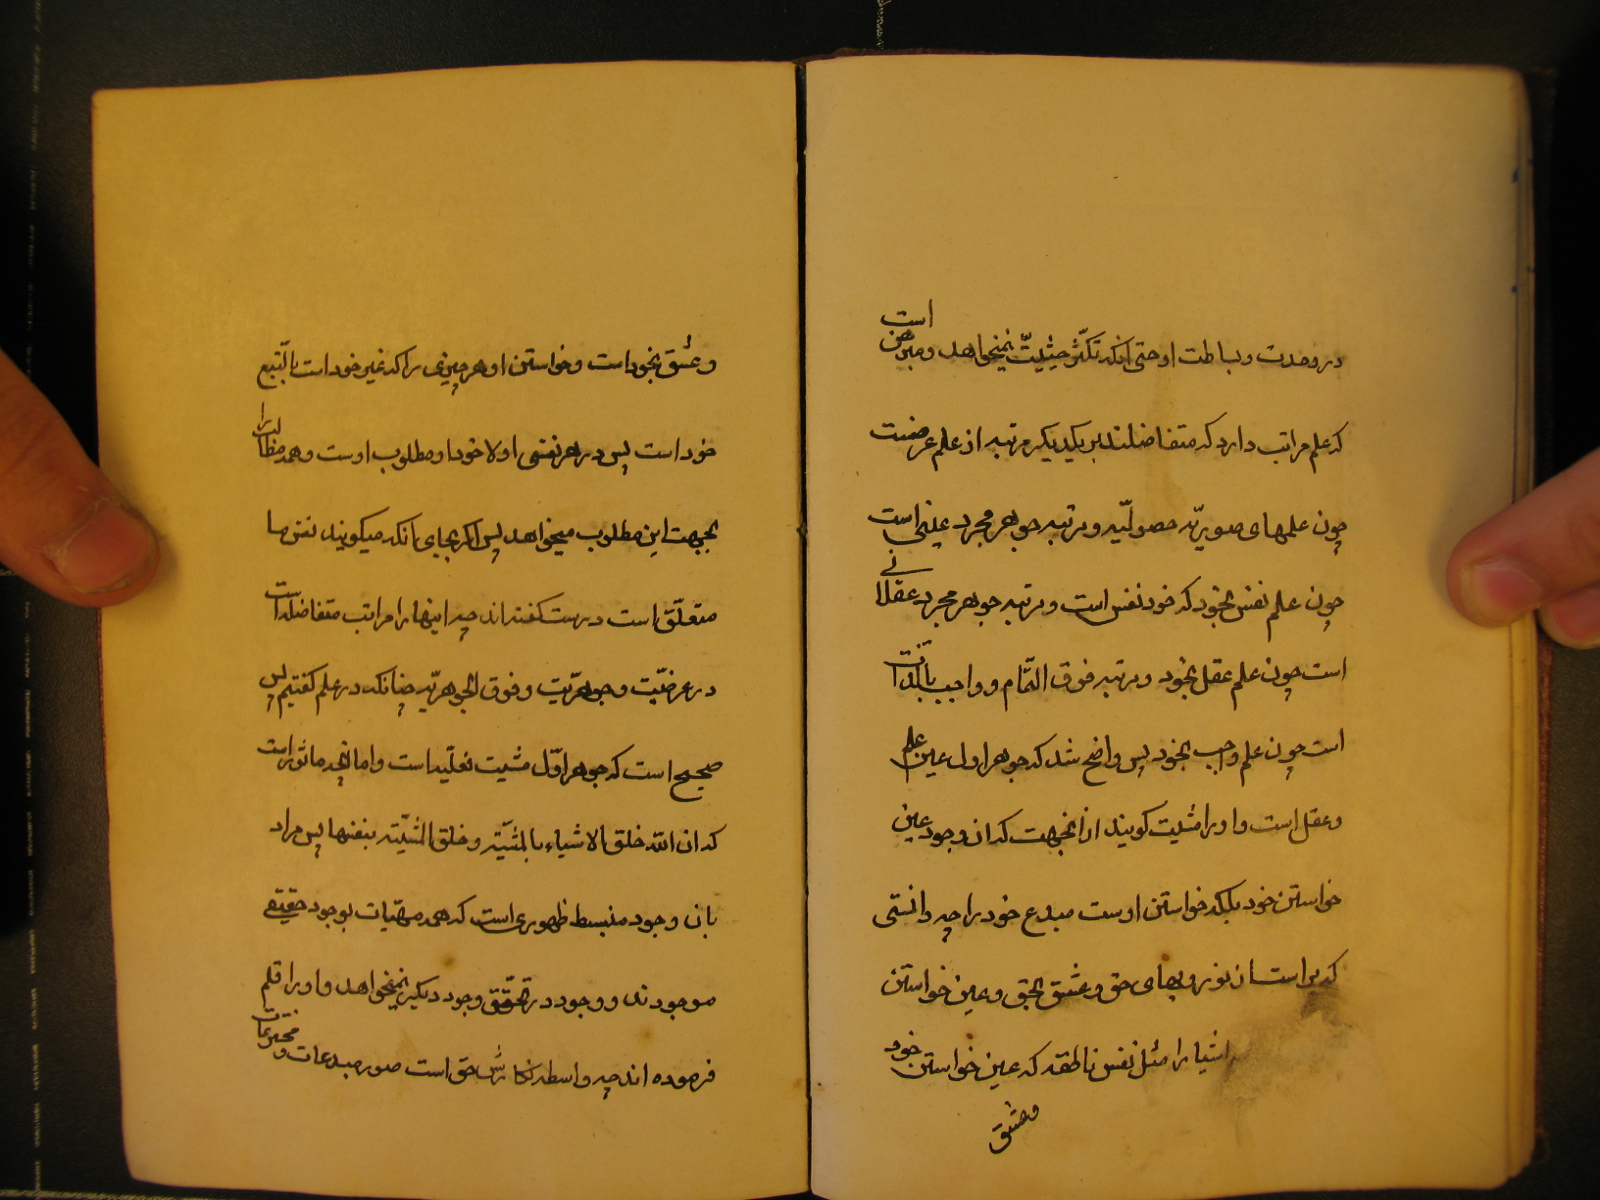 در وحدت و بساطت او حتی آنکه تکثر حیثیت نمیخواهد و مبرهن است
که علم مراتب دارد که متفاضلند بر یکدیگر مرتبه از علم عرضست
چون علمهای صوریّه حصولیّه و مرتبه جوهر مجرد است
چون علم نفس بخود که خود نفس است و مرتبه جوهر مجرد عقلانی
است چون علم عقل بخود و مرتبه فوق التّمام و واجب بالذّاتست
است چون علم واجب بخود پس واضح شد که جوهر اول عین علم
و عقل است و او را مشیت گویند از آنجهت که آن وجود عین
خواستن خود بلکه خواستن اوست مبدع خود را چه دانستی
که نور و بهای حق و عشق بحق و عین خواستن
اشیا را مثل نفس ناطقه که عین خواستن خود
و عشق
و عشق بخود است و خواستن او هر چیزی را که غیر خود است بالتّبع
خود است پس در هر نفسی اولا خود او مطلوب اوست و همه مطالب را
بجهت این مطلوب میخواهد پس اگر بجای آنکه میگویند نفس ما
متعلّق است درست گفته‌اند چه اینها را مراتب متفاضله است
در عرضیّت و جوهریّت و فوق الجوهریّه چنانکه در علم گفتیم پس
صحیح است که جوهر اوّل مشیت فعلیه است و اما آنچه ماثور است
که ان الله خلق الاشیاء بالمشیّة و خلق المشیّة بنفسها پس مراد
بآن وجود منبسط ظهوری است که همه مهیّات بوجود حقیقی
موجودند و وجود در تحقّق وجود دیگر نمیخواهد و او را قلم
فرموده‌اند چه واسطه نگارش حق است صور مبدعات و مخترعات